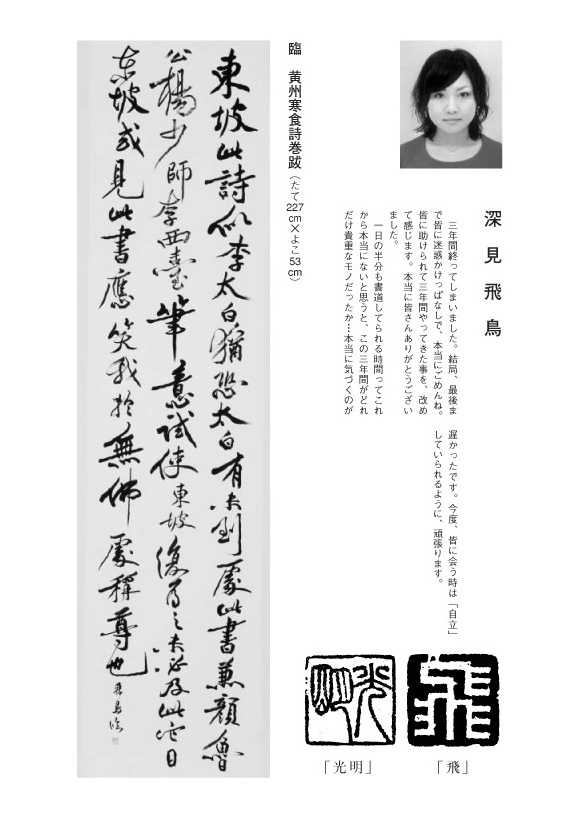 深見飛鳥
三年間終ってしまいました。結局、最後ま
で皆に迷惑かけっぱなしで、本当にごめんね。
皆に助けられて三年間やってきた事を、改め
て感じます。本当に皆さんありがとうござい
ました。
一日の半分も書道してられる時間ってこれ
から本当にないと思うと、この三年間がどれ
だけ貴重なモノだったか…本当に気づくのが
遅かったです。今度、皆に会う時は「自立」
していられるように、頑張ります。
臨 黄州寒食詩巻跋(たて227cm×よこ53cm)
東坡此詩似李太白猶恐太白有未到處此書兼顔魯
公楊少師李西臺筆意試使東坡復為之未必及此它日
東坡或見此書應笑我於無佛處稱尊也 飛鳥臨
飛
「飛」
光明
「光明」